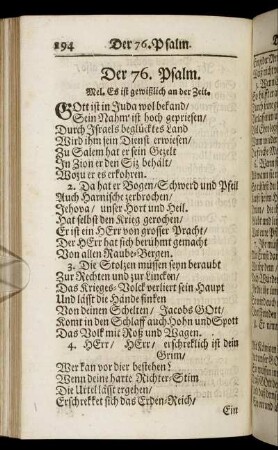 194 Der 76. Psalm.
Der 76. Psalm.
Mel. Es ist gewißlich an der Zeit.
GOtt ist in Juda wol bekand/
Sein Nahm' ist hoch gepriesen/
Durch Israels beglücktes Land
Wird ihm sein Dienst erwiesen/
Zu Salem hat er sein Gezelt
In Zion er den Siz behält/
Wozu er es erkohren.
2. Da hat er Bogen/ Schwerd und Pfeil
Auch Harnische zerbrochen/
Jehova/ unser Hort und Heil.
Hat selbst den Krieg gerochen/
Er ist ein HErr von grosser Pracht/
Der HErr hat sich berühmt gemacht
Von allen Raube-Bergen.
3. Die Stolzen müssen seyn beraubt
Zur Rechten und zur Lincken/
Das Krieges-Volck verliert sein Haupt
Und lässt die Hände sinken
Von deinen Schelten/ Jacobs GOtt/
Komt in den Schlaff auch Hohn und Spott
Das Volk mit Roß und Wagen.
4. HErr/ HErr/ erschreklich ist dein
Grim/
Wer kan vor dier bestehen!
Wenn deine harte Richter-Stim
Die Urtel lässt ergehen/
Erschrekket sich das Erden-Reich/
Ein